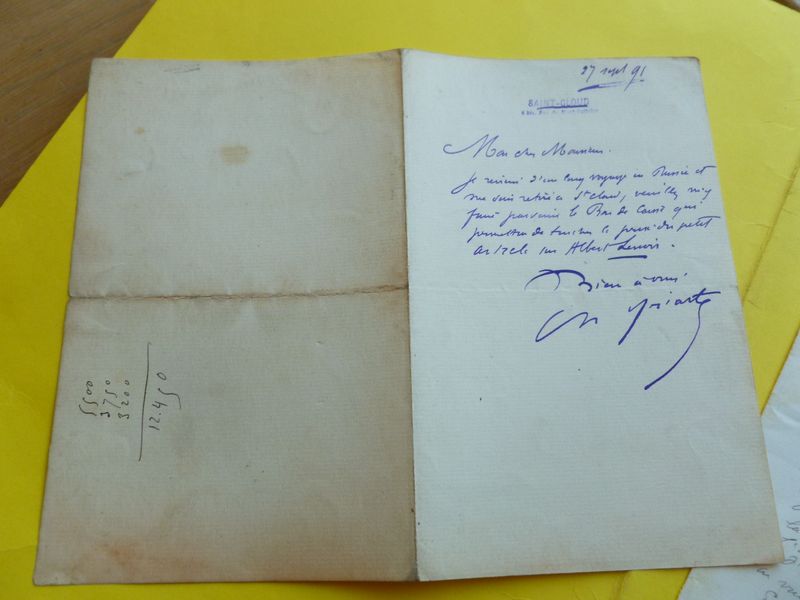 27 sept 91
SAINT-CLOUD
Mon cher Monsieur.
Je reviens d'un long voyage en Russie et
me suis retiré à St Cloud, veuillez m'y
faire parvenir le Bon de Caisse qui
permettra de toucher le prix du petit
article sur Albert Lenoir.
Bien à vous
Ch Yriarte
5500
3750
3200
12.450